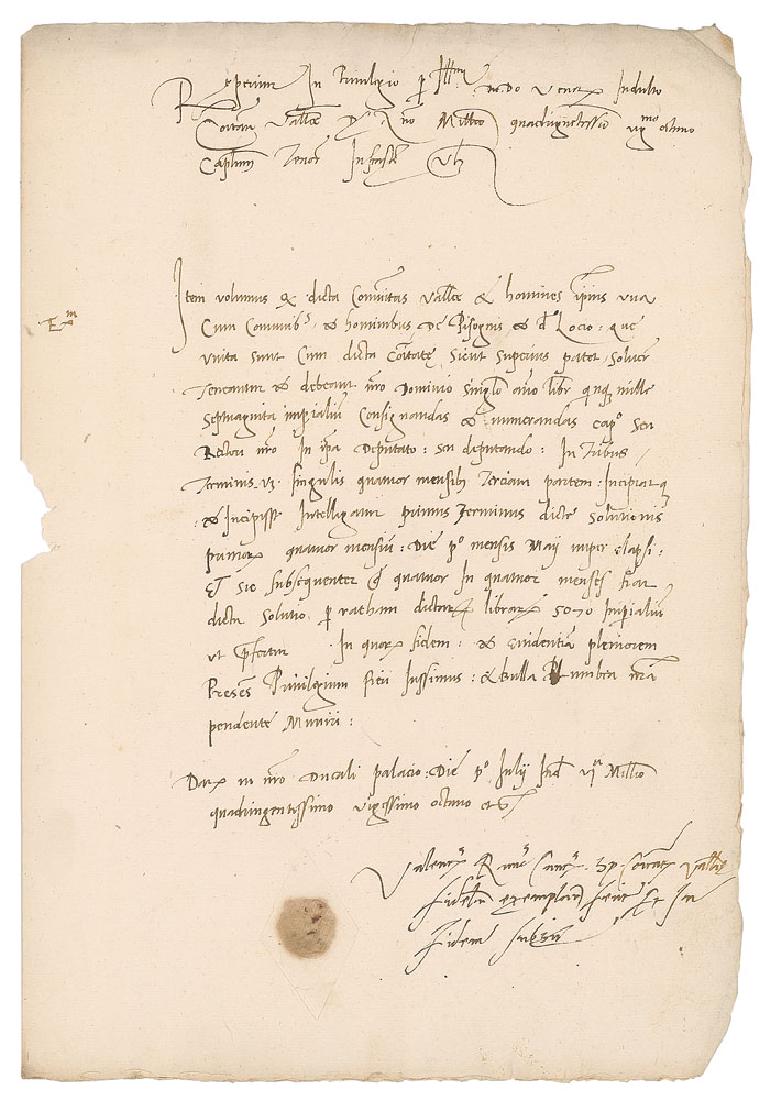 Reperitur In Privilegio p Ill.m Do Venetox Indulto
Coitati Vallis Año Mill'o quadrigentessimo vigmo octavo
Caplum Tenoris Infrascti Vz
Item volumus q dicta Comitas Vallis & homines ipius una
Cum Communibus & hominibus De Pisogneis & de Loero: que
unita sunt Cum dicta Coitate, sicut superius patet, soluere
Teneantur & debeant nro Dominio singulo año libr quinq mille
septuaginta imperialiu Consignandas & numerandas capo seu
Rectori nro In ipa Deputato: seu deputando: In Tribus
Terminis. vz. singulis quatuor mensibus Terciam partem: Incipiatq
& incipisse Intelligatur primus Terminus dicte solutionis
primorx quatuor mensiu: Die po mensis Maij nuper elapsi:
Et sic subsequenter de quatuor In quatuor menses fiat
dicta solutio p ratham dictarx librarx 5070 Imperialiu
ut pfertur In quorx fidem: & euidentia pleniorem
Presens Priuilegium fieri Iussimus: & bulla Plumbea nra
pendente Muniri:
Dat in nro Ducali palacio: Die po Iulij Ind vj Millio
quadringentissimo vigessimo octauo
Vallis
fideliter exemplari fecit Et In
Fidem subss